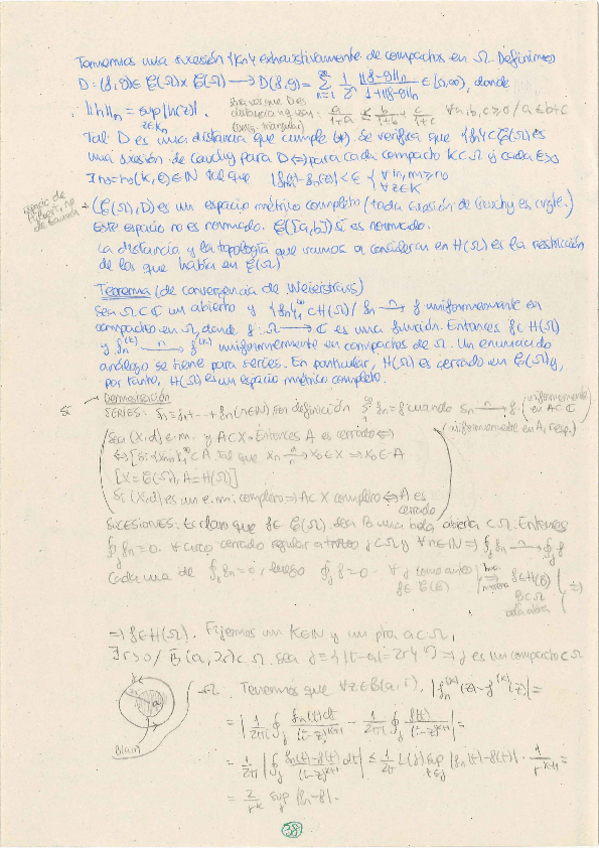 Tomemos una sucesión {Kn} exhaustivamente de compactos en Ω. Definimos
D: (f,g)∈ C(Ω)x C(Ω) → D(f,g) = Σ_{n=1}^∞ 1/2^n ||f-g||n / 1+||f-g||n ∈ [0,∞), donde
||h||n = sup |h(z)|. z∈Kn
D es
distancia a/1+a ≤ b/1+b + c/1+c ∀a,b,c≥0 / a≤b+c
(Desig. triangular)
Tal D es una distancia que cumple (*). Se verifica que {fn} ⊂ C(Ω) es
una sucesión de Cauchy para D ⇔ para cada compacto K⊂Ω y cada ε>0
∃ n0=n0(K,ε)∈N tal que |fm(z)-fn(z)|<ε { ∀n,m≥n0 ∀z∈K
espacio de
de Banach
→ (C(Ω),D) es un espacio métrico completo (toda sucesión de Cauchy es cvgte.)
Este espacio no es normado. C([a,b]) sí es normado.
La distancia y la topología que vamos a considerar en H(Ω) es la restricción
de las que había en C(Ω)
Teorema (de convergencia de Weierstrass)
Sea Ω⊂C un abierto y {fn}₁^∞ ⊂ H(Ω) / fn → f uniformemente en
compactos en Ω, donde f: Ω → C es una función. Entonces f∈H(Ω)
y fn^(k) → f^(k) uniformemente en compactos de Ω. Un enunciado
análogo se tiene para series. En particular, H(Ω) es cerrado en C(Ω) y,
por tanto, H(Ω) es un espacio métrico completo.
→ Demostración
SERIES: Sn = f1+...+fn (n∈N) Por definición Σfn = f cuando Sn → f (uniformemente en A⊂C
(uniformemente en A, resp.)
Sea (X,d) e.m. y A⊂X. Entonces A es cerrado ⇔
⇔ [Si {xn}₁^∞ ⊂ A tal que xn → x0∈X ⇒ x0∈A
[X=C(Ω), A=H(Ω)]
Si (X,d) es un e.m. completo ⇒ A⊂X completo ⇔ A es
cerrado
SUCESIONES: Es claro que f∈ C(Ω). Sea B una bola abierta ⊂Ω. Entonces
∮γ fn=0. ∀ arco cerrado regular a trozos γ⊂Ω y ∀n∈N ⇒ ∮γ fn → ∮γ f
Cada una de ∮γ fn=0, luego ∮γ f=0. ∀ γ como antes f∈C(B) | ⇒ Morera f∈H(B) B⊂Ω bola abta ⇒
⇒ f∈H(Ω). Fijemos un k∈N y un pto a∈Ω,
∃r>0 / B(a,2r)⊂Ω. Sea γ={|t-a|=2r} ⇒ γ es un compacto⊂Ω
Ω. Tenemos que ∀z∈B(a,r), |fn^(k)(z)-f^(k)(z)|=
= | 1/2πi ∮γ fn(t)dt/(t-z)^{k+1} - 1/2πi ∮γ f(t)/(t-z)^{k+1} | =
= 1/2π | ∮γ fn(t)-f(t)/(t-z)^{k+1} dt | ≤ 1/2π L(γ) sup t∈γ |fn(t)-f(t)| · 1/r^{k+1} =
= 2/r^k sup γ |fn-f|.
38